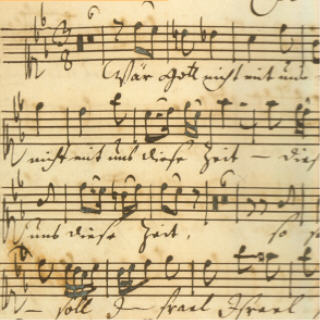 6
3 8 6
Wär Gott nicht mit uns
nicht mit uns diese Zeit – dies
6
uns diese Zeit, so s
– soll I– srael Israel